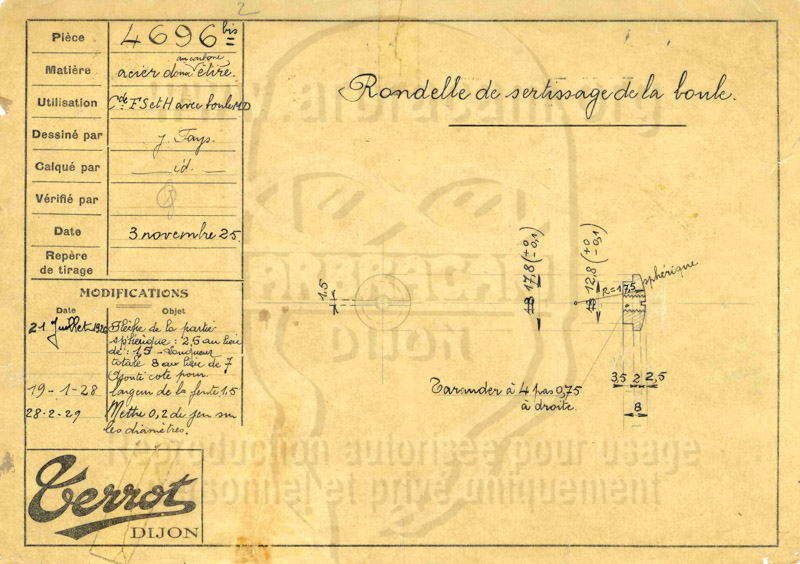 2
Pièce 4696 bis
au carbone
Matière acier doux étiré.
Utilisation Cde FS et H avec boule MD
Dessiné par J. Fays.
Calqué par id.
Vérifié par
Date 3 novembre 25.
Repère
de tirage
MODIFICATIONS
Date Objet
21 Juillet Flèche de la partie
sphérique : 2,5 au lieu
de : 1,5 - Longueur
totale 8 au lieu de 7
Ajouté cote pour
19-1-28 largeur de la fente 1,5
28-2-29 Mettre 0,2 de jeu sur
les diamètres.
Terrot
DIJON
Rondelle de sertissage de la boule.
1,5
17,8 (+0 -0,1)
12,8 (+0 -0,1)
R=17,5
sphérique
3,5 2 2,5
8
Tarauder à 4 pas 0,75
à droite.
DIJON
Reproduction autorisée pour usage
personnel et privé uniquement